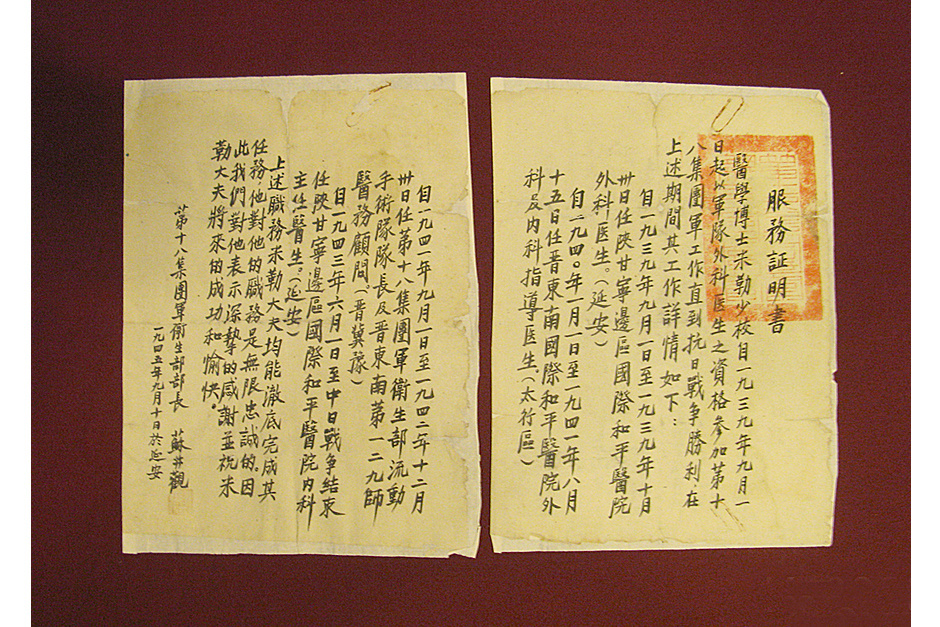 服務証明書
醫学博士米勒少校自一九三九年九月一
日起以軍隊外科医生之資格参加第十
八集團軍工作直到抗日戰争勝利,在
上述期間其工作詳情如下:
自一九三九年九月一日至一九三九年十月
卅日任陜甘寧邊區國際和平醫院
外科医生。(延安)
自一九四〇年一月一日至一九四一年八月
十五日任晋東南國際和平醫院外
科及内科指導医生。(太行區)
自一九四一年九月一日至一九四二年十二月
卅日任第十八集團軍衛生部流動
手術隊隊長及晋東南第一二九師
醫務顧問。(晋冀豫)
自一九四三年六月一日至中日戰争結束
任陜甘寧邊區國際和平醫院内科
主任醫生。(延安)
上述職務米勒大夫均能澈底完成其
任務,他對他的職務是無限忠誠的。因
此我們對他表示深摯的感謝並祝米
勒大夫將來的成功和愉快。
第十八集團軍衛生部部長 蘇井觀
一九四五年九月十日於延安